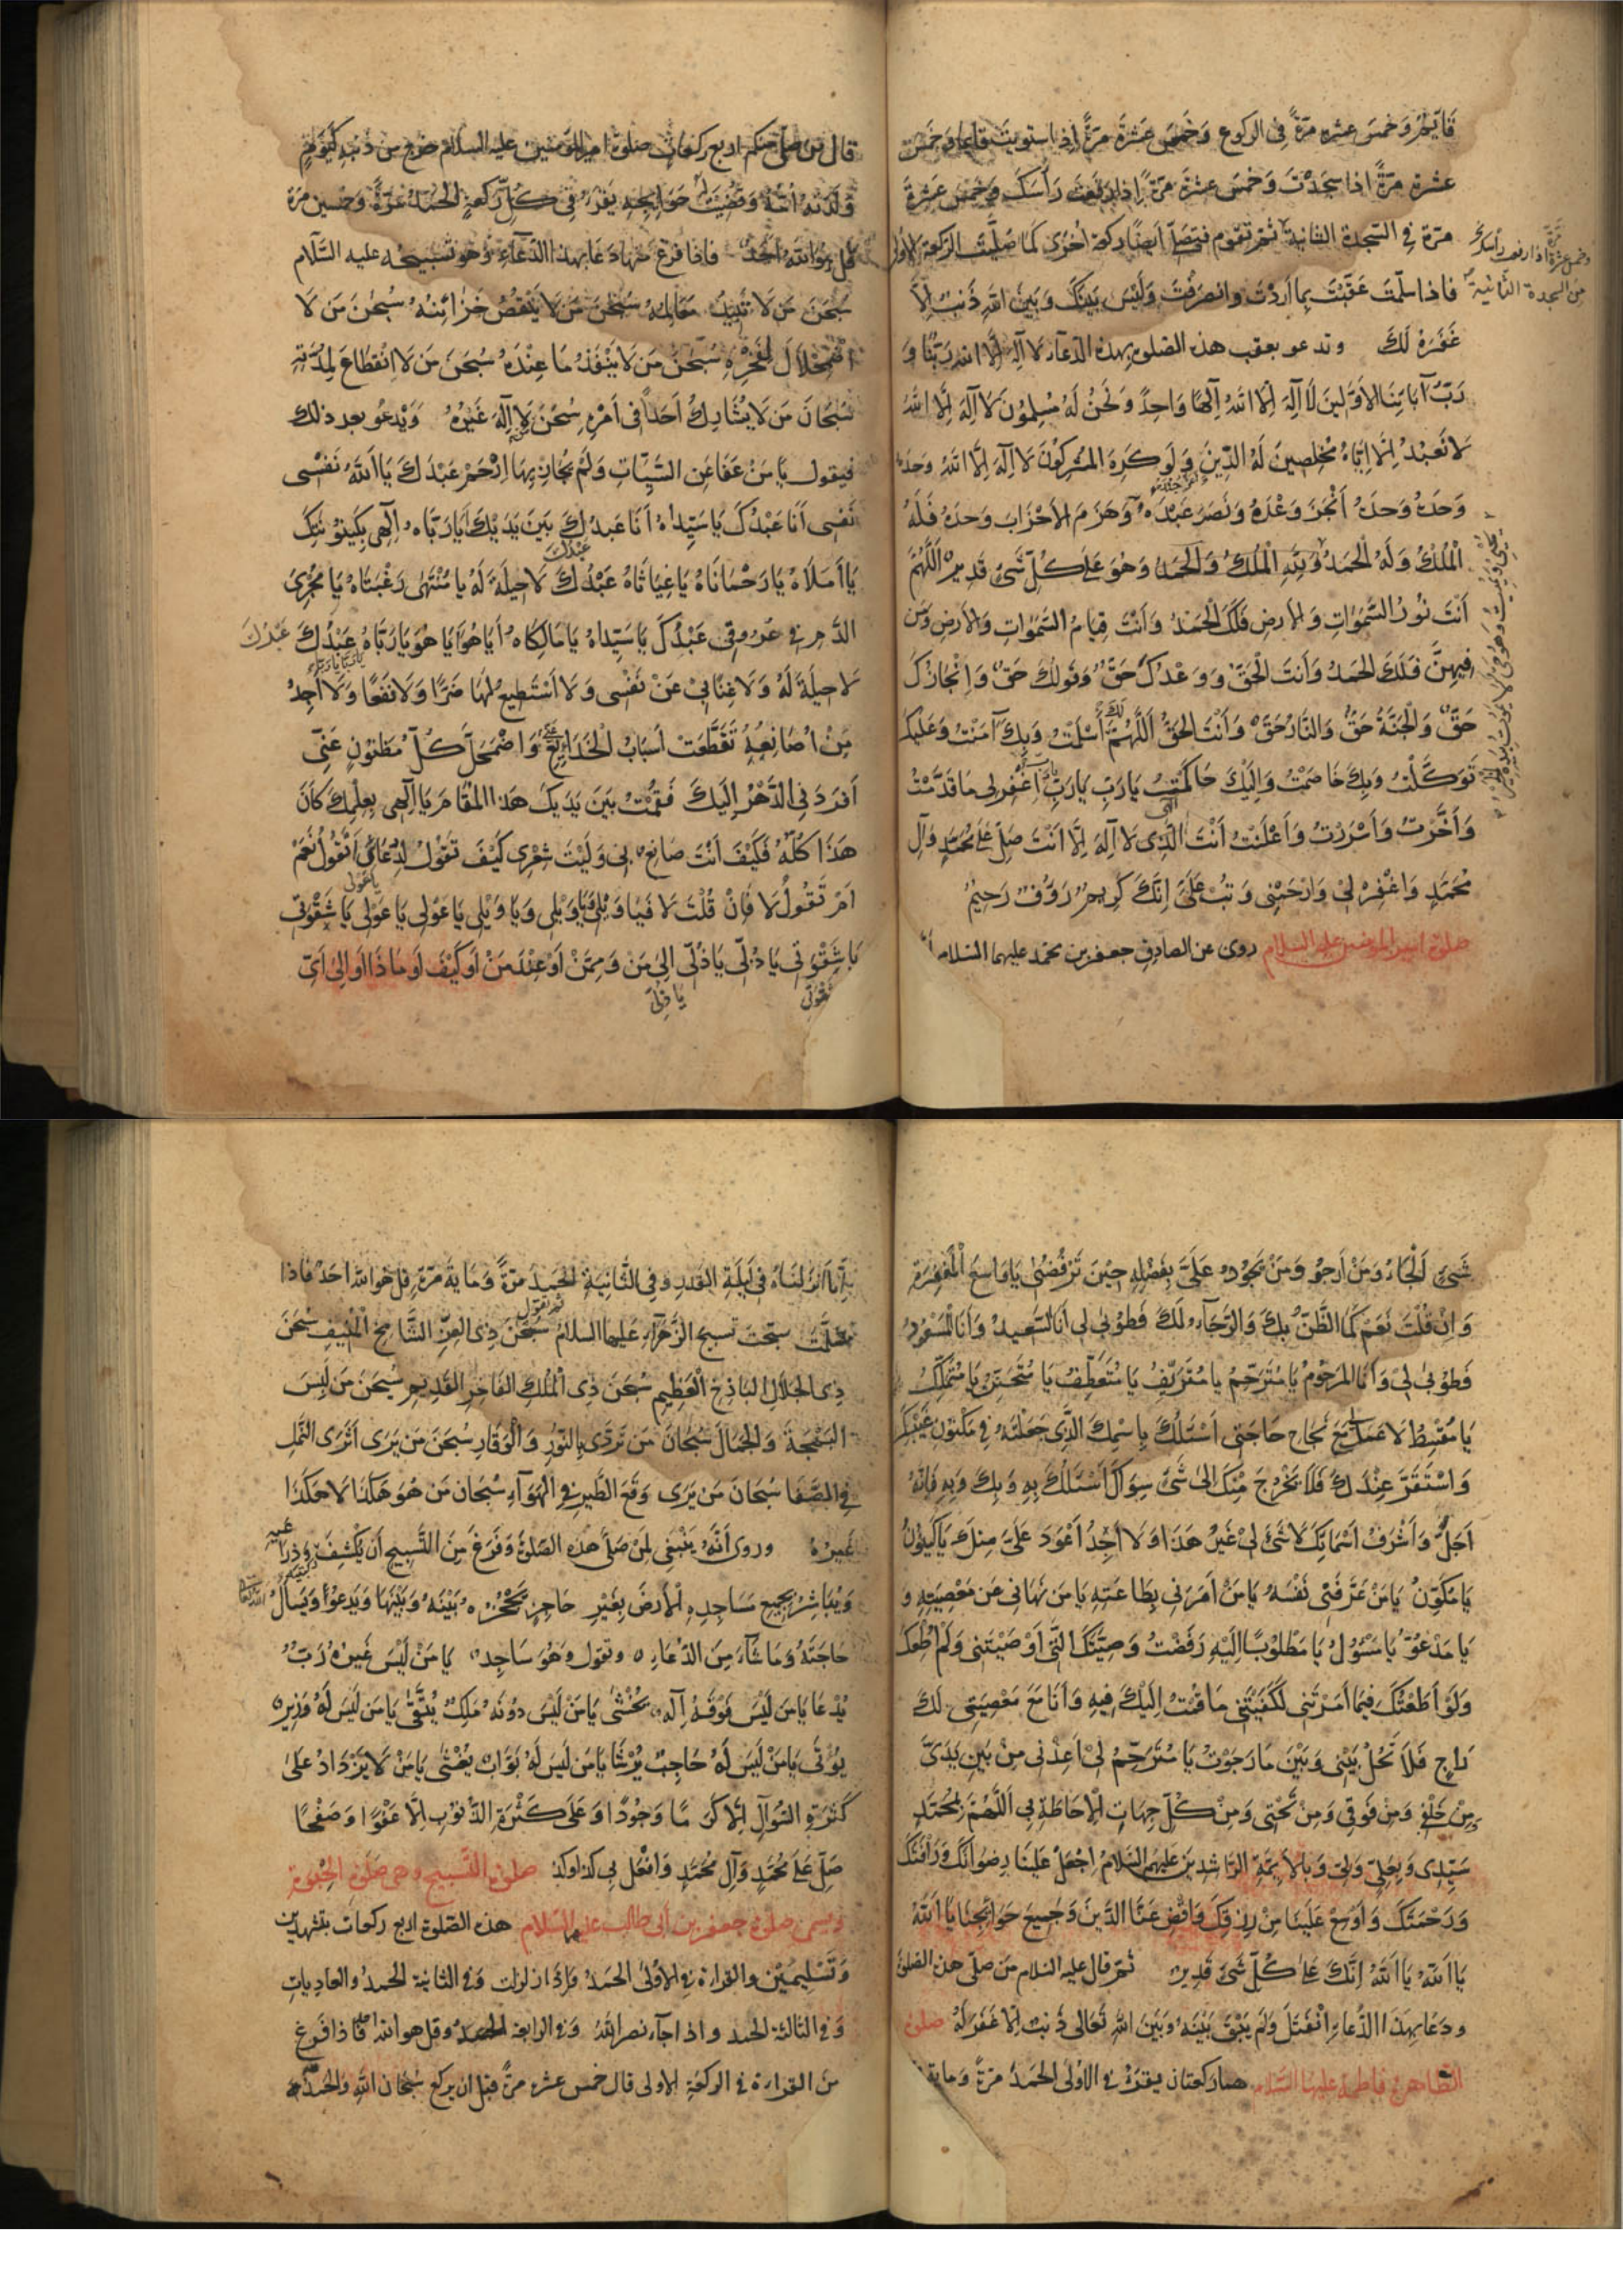 قَائِمٌ وَخَمْسَ عشره مرّةً فى الركوع وَخَمْسَ عَشْرَةَ مَرَّةً اِذا استويت قايما وَخَمْسَ
عشرة مرّةً اذا سجَدْتَ وَخَمْسَ عشرة مرّةً اِذا رفعت رَأسَكَ وخمس عشرةَ
مرّة فِي السّجدة الثانية ثم تقوم فتصلّ ايضا ركعة اُخْرى كما صَلَّيتَ الركعة الاولى
وخمس عشرة مرّة اذا رفعت رأسك
من السجدة الثانية
فاذا سلّمتَ عَقَّبْتَ بما اَرَدْتَ وانصرفتَ وَلَيْسَ بَيْنَكَ وَبَينَ اللهِ ذَنبٌ اِلّا
غَفَرَهُ لَكَ وتدعو بعقب هذه الصّلوة بهذا الدّعاء لا اِلٰهَ اِلَّا اللهُ رَبُّنَا وَ
رَبُّ آبَائِنَا الاَوَّلينَ لَا اِلٰهَ اِلَّا اللهُ اِلٰهًا وَاحِدًا وَنَحْنُ لَهُ مُسْلِمُونَ لَا اِلٰهَ اِلَّا اللهُ
لا نَعبُدُ اِلَّا اِيَّاهُ مُخْلِصِينَ لَهُ الدِّينَ وَلَو كَرِهَ المُشْرِكُونَ لَا اِلٰهَ اِلَّا اللهُ وحدَهُ
وَحدَهُ وَحدَهُ اَنْجَزَ وَعْدَهُ وَنَصَرَ عَبْدَهُ وَهَزَمَ الاَحْزَابَ وَحدَهُ فَلَهُ
الْمُلْكُ وَلَهُ الحَمدُ وَلِلّهِ الْمُلكُ وَالحَمدُ وَهُوَ عَلَى كُلِّ شَىءٍ قَدِيرٌ اَللّٰهُمَّ
اَنْتَ نُورُ السَّمٰوَاتِ وَالارضِ فَلَكَ الْحَمْدُ وَاَنْتَ قِيَامُ السَّمٰوَاتِ وَالارضِ وَمَن
فيهِنَّ فَلَكَ الحَمدُ وَاَنتَ الْحَقُّ وَوَعْدُكَ حَقٌّ وَقَولُكَ حَقٌّ وَاِنْجَازُكَ
حَقٌّ وَالْجَنَّةُ حَقٌّ وَالنَّارُ حَقٌّ وَاَنْتَ الحَقُّ اَللّٰهُمَّ لَكَ اَسْلَمْتُ وَبِكَ آمَنْتُ وَعَلَيْكَ
تَوَكَّلْتُ وَبِكَ خَاصَمْتُ وَاِلَيْكَ حَاكَمْتُ يَا رَبِّ يَا رَبِّ اغْفِر لى مَا قَدَّمْتُ
وَاَخَّرْتُ وَاَسْرَرْتُ وَاَعْلَنْتُ اَنْتَ اِلٰهى الَّذِى لَا اِلٰهَ اِلَّا اَنْتَ صَلِّ عَلَى مُحَمَّدٍ وَآلِ
مُحَمَّدٍ وَاغْفِرْ لِى وَارْحَمْنِى وَتُبْ عَلَىَّ اِنَّكَ كَرِيمٌ رَؤُفٌ رَحِيمٌ
صلوة امير المؤمنين عليه السلام روى عن الصادق جعفر بن محمد عليهما السلام انه
قال من صلى منكم اربع ركعات صلوة امير المؤمنين عليه السلام خرج من ذنوبه كيوم
وَلَدَتْه اُمُّه وَقُضِيَت حَوائجه يَقْرَءُ فى كُلِّ رَكعةٍ الحمد مَرَّةً وخمسين مرة
قل هو الله اَحَد فاذا فرغ منها دَعَا بهذا الدّعاء وهو تسبيحه عليه السَّلام
سُبحنَ مَن لَا تَبِيدُ مَعَالِمُه سُبحٰنَ مَن لَا يَنْقُصُ خَزائِنُهُ سُبحٰنَ مَن لَا
اضْمِحْلَالَ لِفَخْرِهِ سُبحٰنَ مَن لَا يَنْفَدُ مَا عِنْدَهُ سُبحٰنَ مَن لَا انْقِطَاعَ لِمُدَّتِهِ
سُبْحَانَ مَن لَا يُشَارِكُ اَحَدًا فى اَمْرِهِ سُبْحٰنَ مَن لَا اِلٰهَ غَيْرُهُ وَيَدْعُو بعد ذلك
فيقول يَا مَنْ عَفَا عَنِ السَّيِّئاتِ وَلَمْ يُجَازِ بِهَا اِرْحَمْ عَبْدَكَ يَا اَللهُ نَفْسى
نَفْسى اَنَا عَبْدُكَ يَا سَيِّداهُ اَنَا عَبدُكَ بَيْنَ يَدَيْكَ اَيَا رَبَّاه اِلٰهى بِكَيْنُونَتِكَ
يَا اَمَلَاهُ يَا رَحْمَانَاهُ يَا غِيَاثَاهُ عَبْدُكَ عَبْدُكَ لَا حِيلَةَ لَهُ يا مُنْتَهٰى رَغْبَتَاهُ يَا مُجْرِىَ
الدَّمِ فِى عُرُوقى عَبْدُكَ يَا سَيِّدَاهُ يَا مَالِكَاه اَيَا هُوَ اَيَا هُوَ يَا رَبَّاهُ عَبْدُكَ عَبْدُكَ
لَا حِيلَةَ لَهُ وَلَا غِنًا بِى عَنْ نَفْسى وَلَا اَسْتَطِيعُ لَهَا ضَرًّا وَلَا نَفْعًا وَلَا اَجِدُ
مَنْ اُصَانِعُهُ تَقَطَّعَتْ اَسبَابُ الْخَدَائِعِ عَنّى وَاضْمَحَلَّ كُلُّ مَظنُونٍ عَنِّى
اَفْرَدَنِى الدَّهْرُ اِلَيكَ فَقُمْتُ بَينَ يَدَيكَ هَذا المَقَامَ يَا اِلٰهى بِعِلْمِكَ كَانَ
هَذَا كُلُّهُ فَكَيْفَ اَنْتَ صَانِعٌ بِى وَلَيْتَ شِعْرِى كَيْفَ تَقُولُ لِدُعَائِى اَتَقُولُ نَعَمْ
اَمْ تَقُولُ لَا فَاِنْ قُلْتَ لَا فَيَا وَيْلى وَيَا وَيْلى وَيَا وَيْلى يَا عَوْلى يَا عَوْلى يَا عَوْلى يَا شَقْوَتى
يَا شَقْوَتى يَا ذُلّى يَا ذُلّى اِلىٰ مَنْ وَمِمَّنْ اَوْ عِنْدَ مَنْ اَو كَيْفَ اَو مَاذَا اَو اِلىٰ اَىِّ
شقوتى يا ذلّى
شَىْءٍ اَلْجَاءُ وَمَنْ اَرجُو وَمَنْ يَجُودُ عَلَىَّ بِفَضْلِهِ حِيْنَ تَرْفُضُنِى يَا وَاسِعَ الْمَغْفِرَةِ
وَاِنْ قُلْتَ نَعَمْ كَمَا الظَّنُّ بِكَ وَالرَّجَآءُ لَكَ فَطُوْبىٰ لى اَنَا السَّعيدُ وَاَنَا الْمَسْعُودُ
فَطُوْبىٰ لِى وَاَنَا المَرحُومُ يَا مُتَرَحِّمُ يَا مُتَرَئِّفُ يَا مُتَعَطِّفُ يَا مُتَحَنِّنُ يَا مُتَمَلِّكُ
يَا مُقْسِطُ لَا عَمَلَ لى مَعَ نَجَاحِ حَاجَتى اَسْئَلُكَ بِاسْمِكَ الَّذِى جَعَلْتَهُ فى مَكْنُونِ غَيْبِكَ
وَاسْتَقَرَّ عِنْدَكَ فَلَا يَخْرُجُ مِنْكَ اِلىٰ شَىْءٍ سِوَاكَ اَسْئَلُكَ بِهِ وَبِكَ وَبِهِ فَاِنَّهُ
اَجَلُّ وَاَشْرَفُ اَسْمَائِكَ لَا شَىْءَ لِى غَيْرُ هَذَا وَلَا اَجِدُ اَعْوَدَ عَلَىَّ مِنكَ يَا كَيْنُونُ
يَا مُكَوِّنُ يَا مَنْ عَرَّفَنى نَفْسَهُ يَا مَنْ اَمَرَنى بِطَاعَتِهِ يَا مَن نَهَانى عَن مَعْصِيَتِهِ وَ
يَا مَدْعُوُّ يَا مَسْئُولُ يَا مَطْلُوبًا اِلَيْهِ رَفَضْتُ وَصِيَّتَكَ الَّتى اَوْصَيْتَنى وَلَمْ اُطِعْكَ
وَلَوْ اَطَعْتُكَ فيمَا اَمَرْتَنى لَكَفَيْتَنى مَا قُمْتُ اِلَيْكَ فيهِ وَاَنَا مَعَ مَعْصِيَتى لَكَ
رَاجٍ فَلَا تَحُلْ بَيْنى وَبَيْنَ مَا رَجَوْتُ يَا مُتَرَحِّمُ لِى اَعِذْنى مِنْ بَيْنِ يَدَىَّ
وَمِنْ خَلْفى وَمِن فَوقى وَمِن تَحْتى وَمِنْ كُلِّ جِهَاتِ الْاِحَاطَةِ بِى اَللّٰهُمَّ بِمُحَمَّدٍ
سَيِّدِى وَبِعَلِىٍّ وَلِيّى وَبِالْاَئِمَّةِ الرَّاشِدينَ عَلَيهِمُ السَّلَامُ اِجْعَلْ عَلَيْنَا رِضْوَانَكَ وَرَأْفَتَكَ
وَرَحْمَتَكَ وَاَوْسِعْ عَلَيْنَا مِنْ رِزْقِكَ وَاقْضِ عَنَّا الدَّيْنَ وَجَمِيعَ حَوَائِجِنَا يَا اَللهُ
يَا اَللهُ يَا اَللهُ اِنَّكَ عَلىٰ كُلِّ شَىْءٍ قَدِيرٌ ثُمَّ قال عليه السلام مَن صلّى هذه الصلوة
ودَعَا بِهَذَا الدُّعَاءِ انْفَتَلَ وَلَم يَبْقَ بَيْنَهُ وَبَينَ اللهِ تَعَالى ذَنْبٌ اِلّا غَفَرَ لَهُ صلوة
الطاهرة فاطمة عليها السَّلام هما ركعتان يقرَءُ فى الاولىٰ الحمدُ مَرّةً ومائة
اِنَّا اَنزَلنَاهُ فى لَيلَةِ القدرِ وفى الثّانِيَةِ الحَمدَ مَرّةً وَمِايةَ مَرّةٍ قل هو الله احَدٌ فاذا
سَلّمتَ سبّحتَ تسبيح الزَّهرَآءِ عَلَيها السلام ثم تقول سُبْحٰنَ ذِى العِزِّ الشَّامِخِ الْمُنِيفِ سُبحٰنَ
ذِى الجَلَالِ البَاذِخِ الْعَظِيمِ سُبحٰنَ ذِى الْمُلكِ الفَاخِرِ القَدِيمِ سُبحٰنَ مَن لَبِسَ
البَهْجَةَ وَالجَمَالَ سُبْحَانَ مَن تَرَدّى بِالنُّورِ وَالْوَقَارِ سُبحٰنَ مَن يَرَى اَثَرَ النَّملِ
فِى الصَّفَا سُبحَانَ مَن يَرَى وَقعَ الطَّيرِ فِى الْهَوَآءِ سُبْحَان مَن هُوَ هَكَذَا لَا هَكَذَا
غَيرُهُ ورَوى اَنَّهُ يَنْبَغى لِمَن صَلّى هذه الصّلوة وَفَرَغَ مِنَ التَّسبِيحِ اَن يَكْشِفَ ركبتيه وَذِراعيه
وَيُبَاشِرَ بِجَمِيعِ مَسَاجِدِهِ الْاَرضَ بِغَيْرِ حَاجِزٍ يَحْجُزُ بَيْنَهُ وَبَيْنَهَا وَيَدعُوَ وَيَسأَلَ اللهَ تَعَالىٰ
حَاجَتَهُ وَمَا شَآءَ مِنَ الدُّعَاءِ وتَقول وَهُوَ سَاجِد يَا مَنْ لَيْسَ غَيرَهُ رَبٌّ
يُدْعَا يَا مَن لَيْسَ فَوْقَهُ اِلٰهٌ يُخْشٰى يَا مَنْ لَيْسَ دُونَهُ مَلِكٌ يُتَّقىٰ يَا مَن لَيسَ لَهُ وَزِيرٌ
يُؤتىٰ يَا مَنْ لَيسَ لَهُ حَاجِبٌ يُرْشَا يَا مَن لَيسَ لَهُ بَوَّابٌ يُغْشىٰ يَا مَنْ لَا يَزْدَادُ عَلىٰ
كَثرَةِ السُّؤالِ اِلّا كَرَمًا وَجُودًا وَعَلى كَثْرَةِ الذُّنُوبِ اِلّا عَفْوًا وَصَفْحًا
صَلِّ عَلى مُحَمَّدٍ وَآلِ مُحَمَّدٍ وَافْعَل بى كذا وكذا صلوة التسبيح وهى صلوة الحبوة
وتسمى صلوة جعفر بن ابى طالب عليهما السّلام هذه الصّلوة اربع ركعات بتشهدين
وَتَسْلِيمَيْنِ والقراءة فى الاُولىٰ الحمَدُ وَاِذَا زلزلت وفى الثانية الحمدُ والعادِياتِ
وَفى الثالثة الحمد واذا جآء نصر اللهِ وَفى الرابعة الحمد وقل هو الله فاذا فرغ
من القراءة فى الركعَةِ الاولى قال خمس عشرة مرّةً قبل ان يركع سُبْحَانَ اللهِ وَالحَمدُ لله